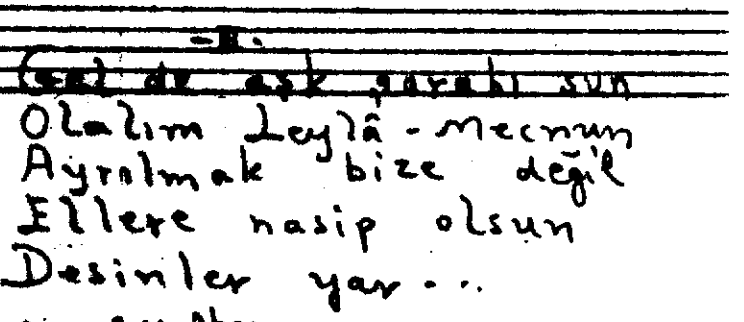 -II-
Gel de aşk şarabı sun
Olalım Leylâ-Mecnun
Ayrılmak bize değil
Ellere nasip olsun
Desinler yar...